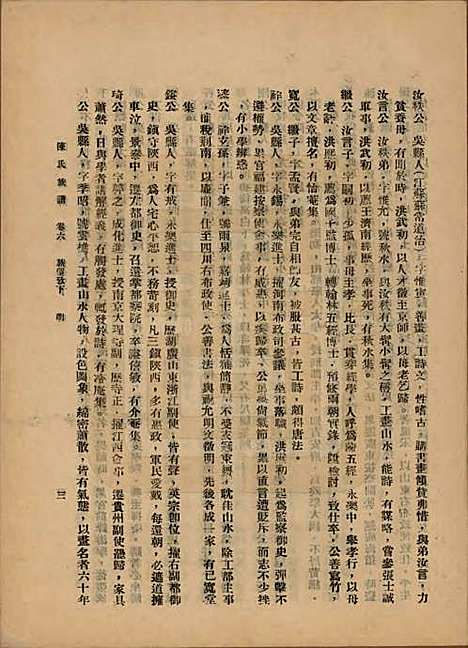 汝秩公 吳縣人(江蘇蘇常道治)字惟寅善畫工詩文性嗜古購書畫傾貲弗惜與弟汝言力
貧養母有聞於時洪武初以人才徵至京師以母老乞歸
汝言公 汝秩弟字惟允號秋水與汝秩有大髯小髯之稱工畫山水能詩有謀略嘗參張士誠
軍事洪武初以薦王濟南經歷坐事死有秋水集
繼公 汝言子字嗣初少孤事母王孝比長貫穿經學人呼為陳五經永樂中舉孝行以母
老辭洪熙初薦為國子監博士轉翰林五經博士預修兩朝實錄遷檢討致仕卒公善寫竹
以文章擅名有怡菴集
寬公 繼子字孟賢與弟完自相師友被服甚古皆工詩頗得唐法
祚公 吳縣人字永錫永樂進士擢河南布政司參議坐事落職洪熙初起為監察御史彈擊不
避權勢累官福建按察使僉事有威惠以疾歸卒公母梗尚氣節累以直言遭貶斥而卒不少挫
有小學辯惑
遂公 祚玄孫字子兼號雨泉嘉靖進士為人恬雅簡率不受衣冠束縛耽佳山水除工部主事
榷稅荊南以廉聞仕至四川右布政使公善書法與祝允明文徵明先後各成一家有已寬堂
集
鎰公 吳縣人字有戒永樂進士授御史歷湖廣山東浙江副使皆有聲英宗卽位擢右副都御
史鎮守陝西為人宅心平恕不務苛刻凡三鎮陝西多有惠政軍民愛戴每還朝必遮道擁
車泣景泰中還左都御史召還掌都察院卒諡僖敏有介菴集
琦公 吳縣人字粹之成化進士授南京大理評副歷寺正擢江西僉事遷貴州副使罷歸家具
蕭然日與學者講解經義有觸發處輒發於詩有冷庵集
公 吳縣人字季昭號墨墩工畫山水人物設色圖染縝密蕭散皆有氣態以畫名者六十年
陳氏族譜 卷六 明